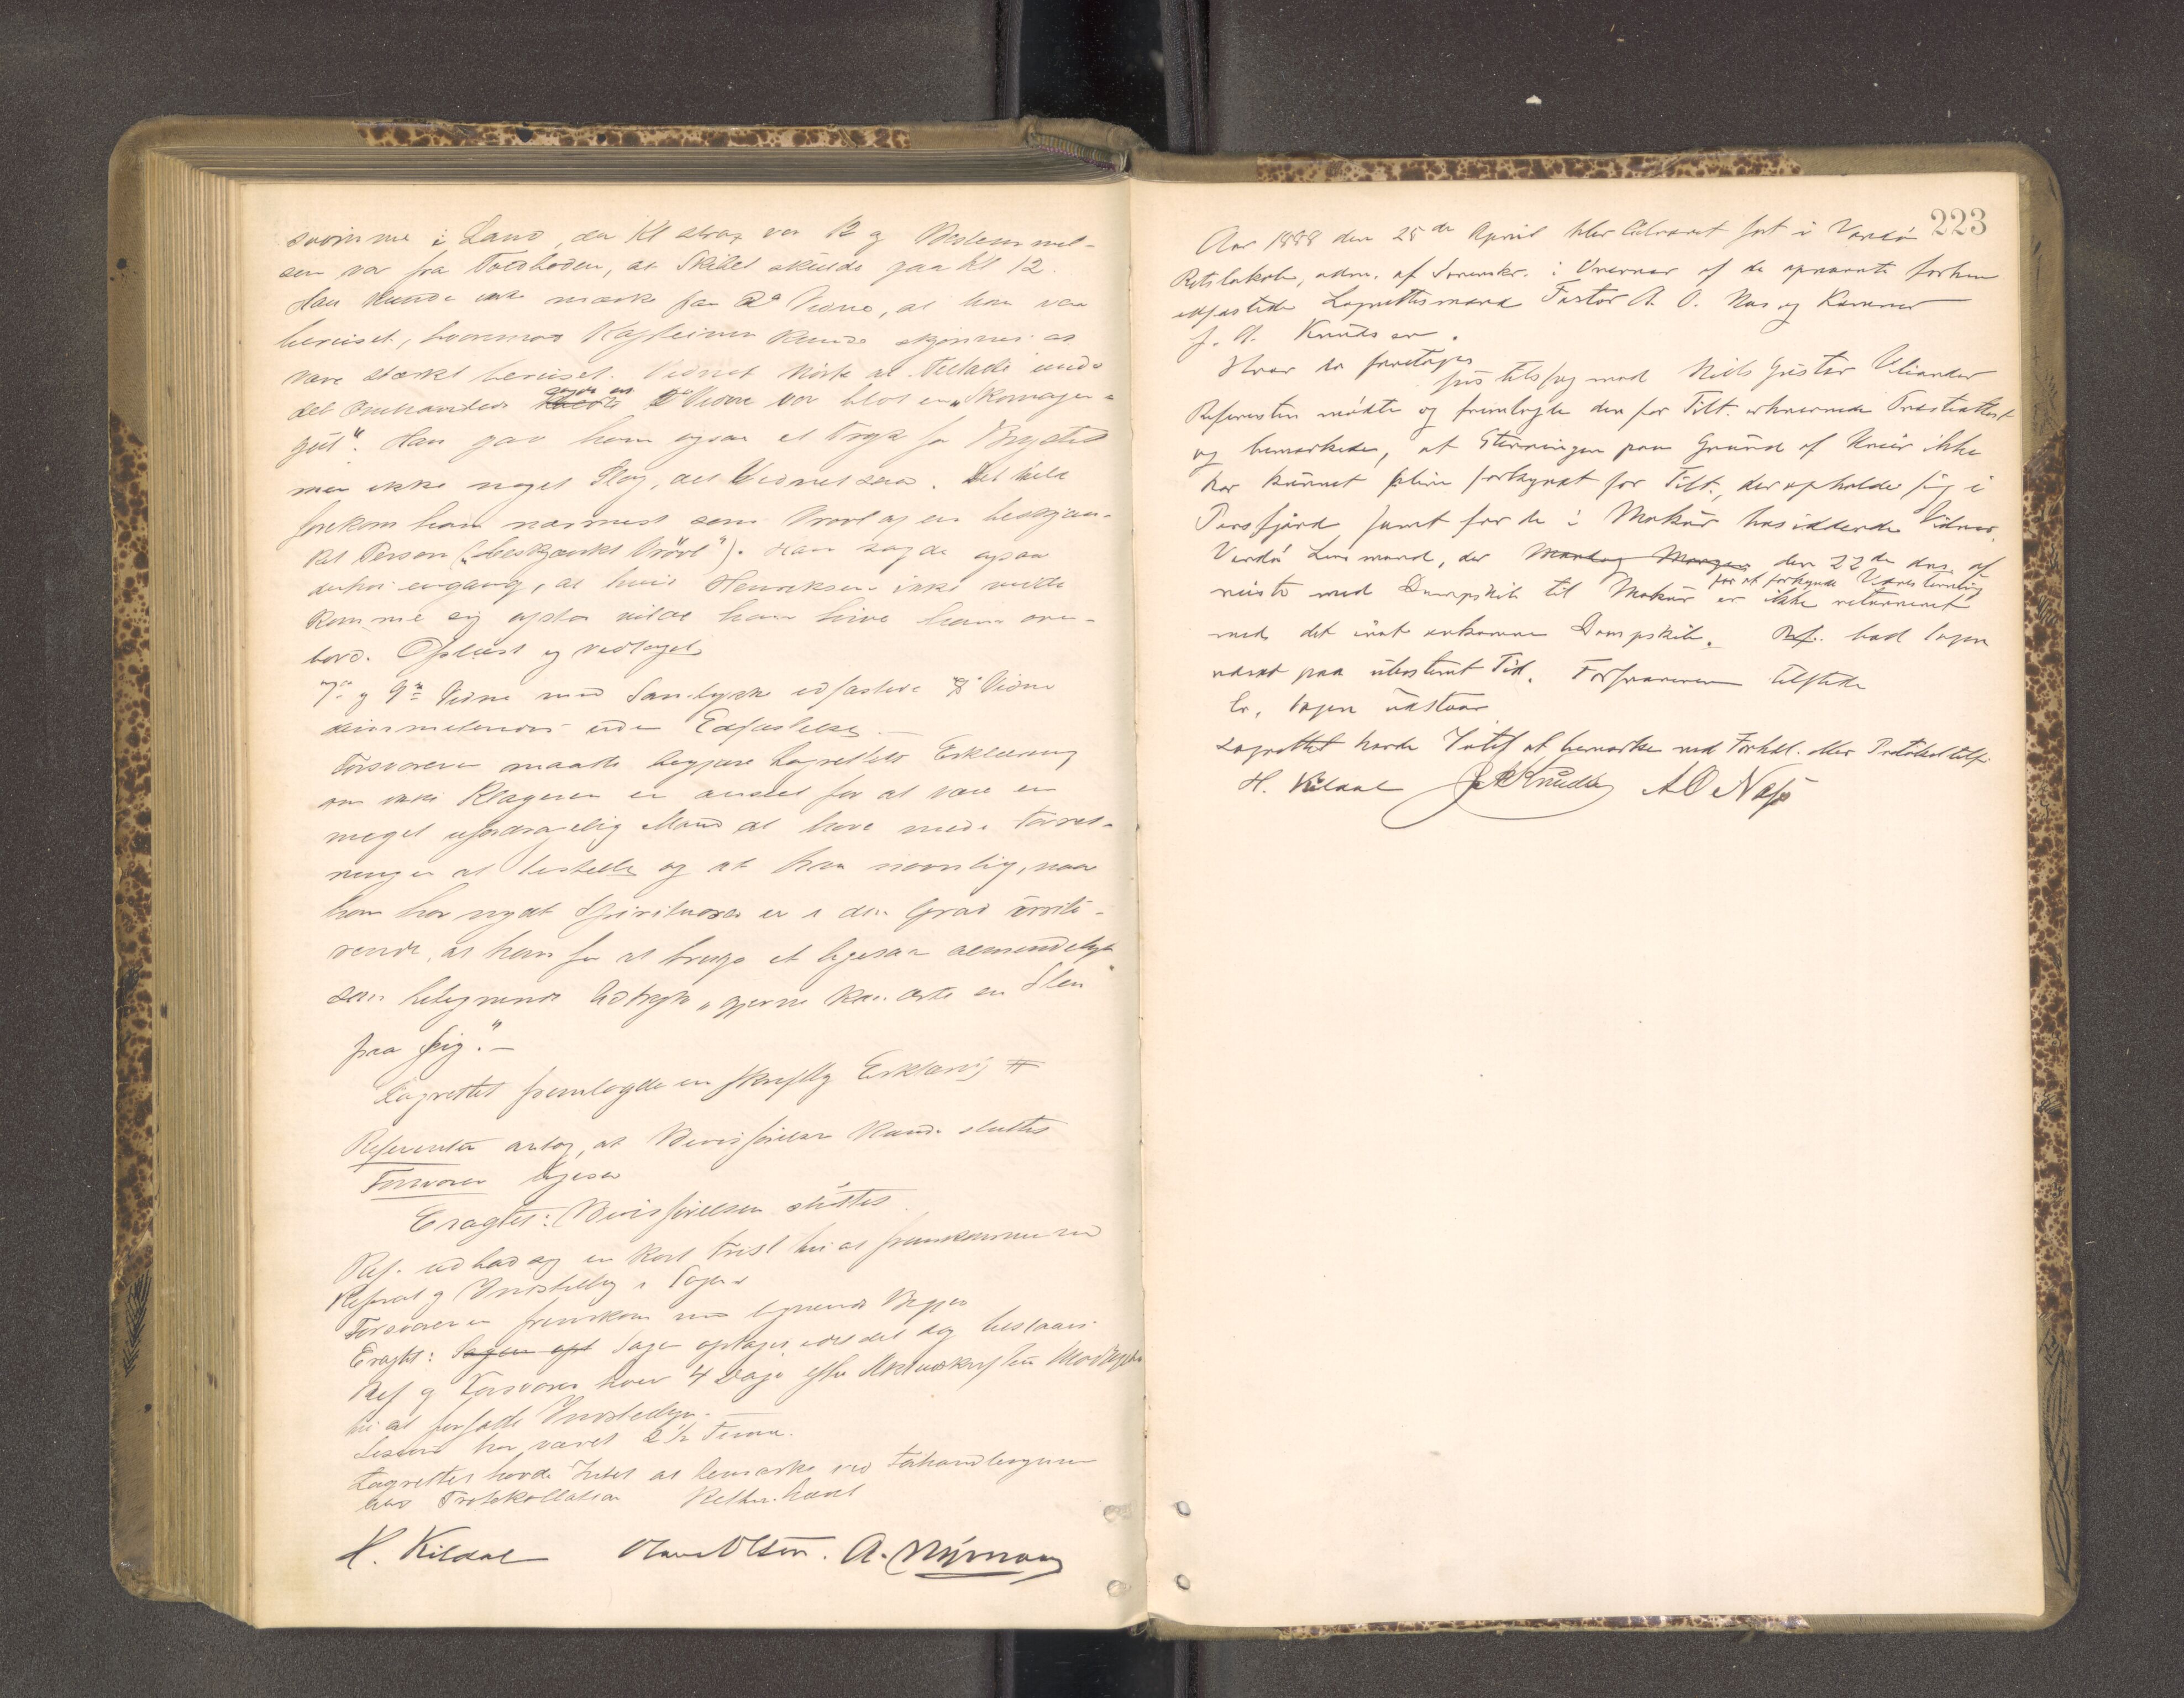 svømme i Land, da Kl strax var 12 og Bestemmel-
sen var fra Toldboden, at Skibet skulde gaa Kl 12.
Han kunde ikke mærke paa 2det Vidne, at han var
beruset, hvorimod Kapteinen kunde skjønnes at
være stærkt beruset. Vidnet hørte at Tiltalte under
det Omhandlede sagde at Vidne var blot en "Skomager-
gut". Han gav ham ogsaa et Tryk for Brystet
men ikke noget Slag, det Vidnet saa. Det hele
forekom ham nærmest som Vrøvl af en beskjæn-
ket Person ("beskjænket Vrøvl"). Han sagde ogsaa
engang, at hvis Henriksen ikke vilde
komme sig agter vilde han hive ham over-
bord. Oplæst og vedtaget.
7de og 9de Vidne med Samtykke edfæstede 8de Vidne
dimitteredes uden Edfæstelse.
Forsvareren maatte begjære Lagrettets Erklæring
om ikke Klageren er anseet for at være en
meget ufordragelig Mand at have med Forret-
ninger at bestille og at han navnlig, naar
han har nydt Spirituosa er i den Grad irrite-
rende, at han for at bruge et ligesaa almindeligt
som betegnende Udtryk "gjerne kan ærte en Sten
paa sig". –
Lagrettet fremlagde en skriftlig Erklæring #
Referenten antog, at Bevisførelsen kunde sluttes
Forsvareren ligesaa
Eragtet: Bevisførelsen sluttes.
Ref. udbad sig en kort Frist til at fremkomme med
Referat og Indstilling i Sagen
Forsvareren fremkom med lignende Begjær
Eragtet: Sagen opt Sagen optages idet det dog tilstaaes
Ref og Forsvarer hver 4 Dage efter Aktudskriftens Modtagelse
til at forfatte Indstilling. –
Sessionen har varet 2 1/2 Time.
Lagrettet havde Intet at bemærke ved Forhandlingerne
eller Protokollationen Retten hævet
H. Kildal Hans Olsen. A. Nyman
223
Aar 1888 den 25de April blev Extraret sat i Vardø
Retslokale, adm. af Sorenskr. i Overvær af de opnævnte forhen
edfæstede Lagrettesmænd Fastor A. O. Nas og Kræmmer
J. A. Knudsen.
Hvor da foretages
Jus: tils sag mod Niels Gustav Uliander
Referenten mødte og fremlagde den for Tilt. erhvervede Præsteattest
og bemærkede, at Stævningen paa Grund af Uveir ikke
har kunnet blive forkyndt for Tilt., der opholder sig i
Persfjord samt for de i Makur hasiddende Vidner.
Vardø Lensmand, der Mandag Morgen den 22de ds. af
reiste med Dampskib til Makur for at forkynde Varestevning er ikke returneret
med det inat ankomne Dampskib. Ref. bad Sagen
udsat paa ubestemt Tid. Forsvareren tilstede
Er. Sagen udstaar
Lagrettet havde Intet at bemærke ved Forhdl. eller Protokoltilf.
H. Kildal J A Knudsen A O Nass